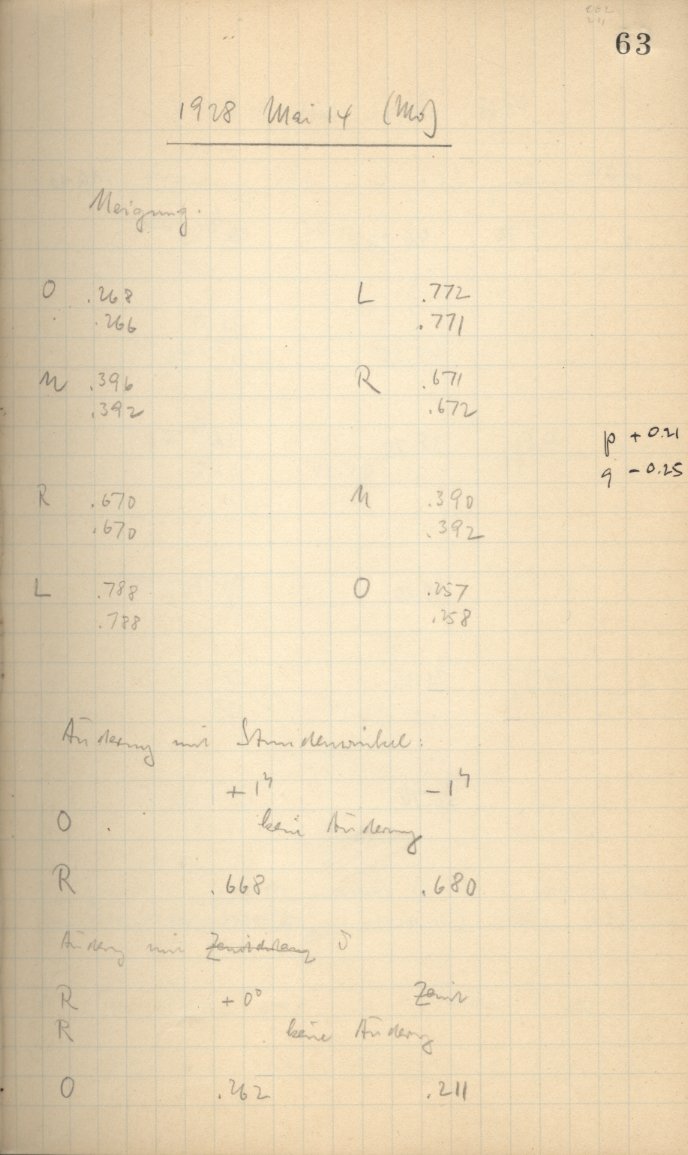 63
1928 Mai 14 (Mo)
Neigung.
O .268 L .772
.266 .771
N .396 R .671
.392 .672
p + 0.21
q - 0.25
R .670 N .390
.670 .392
L .788 O .257
.788 .258
Änderung mit Stundenwinkel:
+ 1h - 1h
O keine Änderung
R .668 .680
Änderung mit δ
R + 0° Zenit
R keine Änderung
O .262 .211